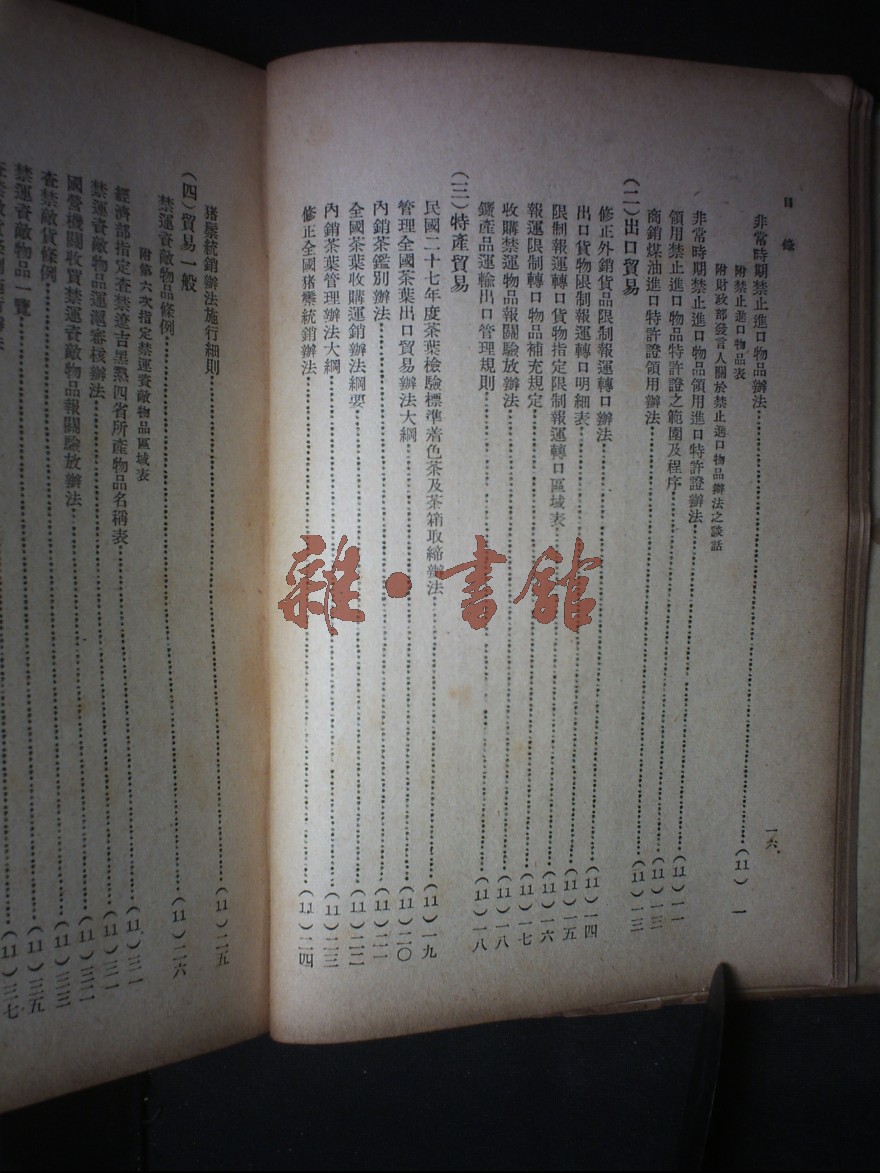 目錄
一六
非常時期禁止進口物品辦法……(11)一
附禁止進口物品表
附財政部發言人關於禁止進口物品辦法之談話
非常時期禁止進口物品領用進口特許證辦法
領用禁止進口物品特許證之範圍及程序……(11)一一
商銷煤油進口特許證領用辦法……(11)一三
(二)出口貿易……(11)一三
修正外銷貨品限制報運轉口辦法
出口貨物限制報運轉口明細表……(11)一四
限制報運轉口貨物指定限制報運轉口區域表……(11)一五
報運限制轉口物品補充規定……(11)一六
收購禁運物品報關驗放辦法……(11)一七
鑛產品運輸出口管理規則……(11)一八
(三)特產貿易……(11)一八
民國二十七年度茶葉檢驗標準着色茶及茶箱取締辦法……(11)一九
管理全國茶葉出口貿易辦法大綱……(11)二〇
內銷茶鑑別辦法……(11)二一
全國茶葉收購運銷辦法綱要……(11)二二
內銷茶葉管理辦法大綱……(11)二三
修正全國猪鬃統銷辦法……(11)二四
猪鬃統銷辦法施行細則……(11)二五
(四)貿易一般
禁運資敵物品條例……(11)二六
附第六次指定禁運資敵物品區域表
經濟部指定查禁遼吉黑熱四省所產物品名稱表……(11)三一
禁運資敵物品運滬審核辦法……(11)三一
國營機關收買禁運資敵物品報關驗放辦法……(11)三二
查禁敵貨條例……(11)三三
禁運資敵物品一覽……(11)三五
……(11)三七
雜·書館